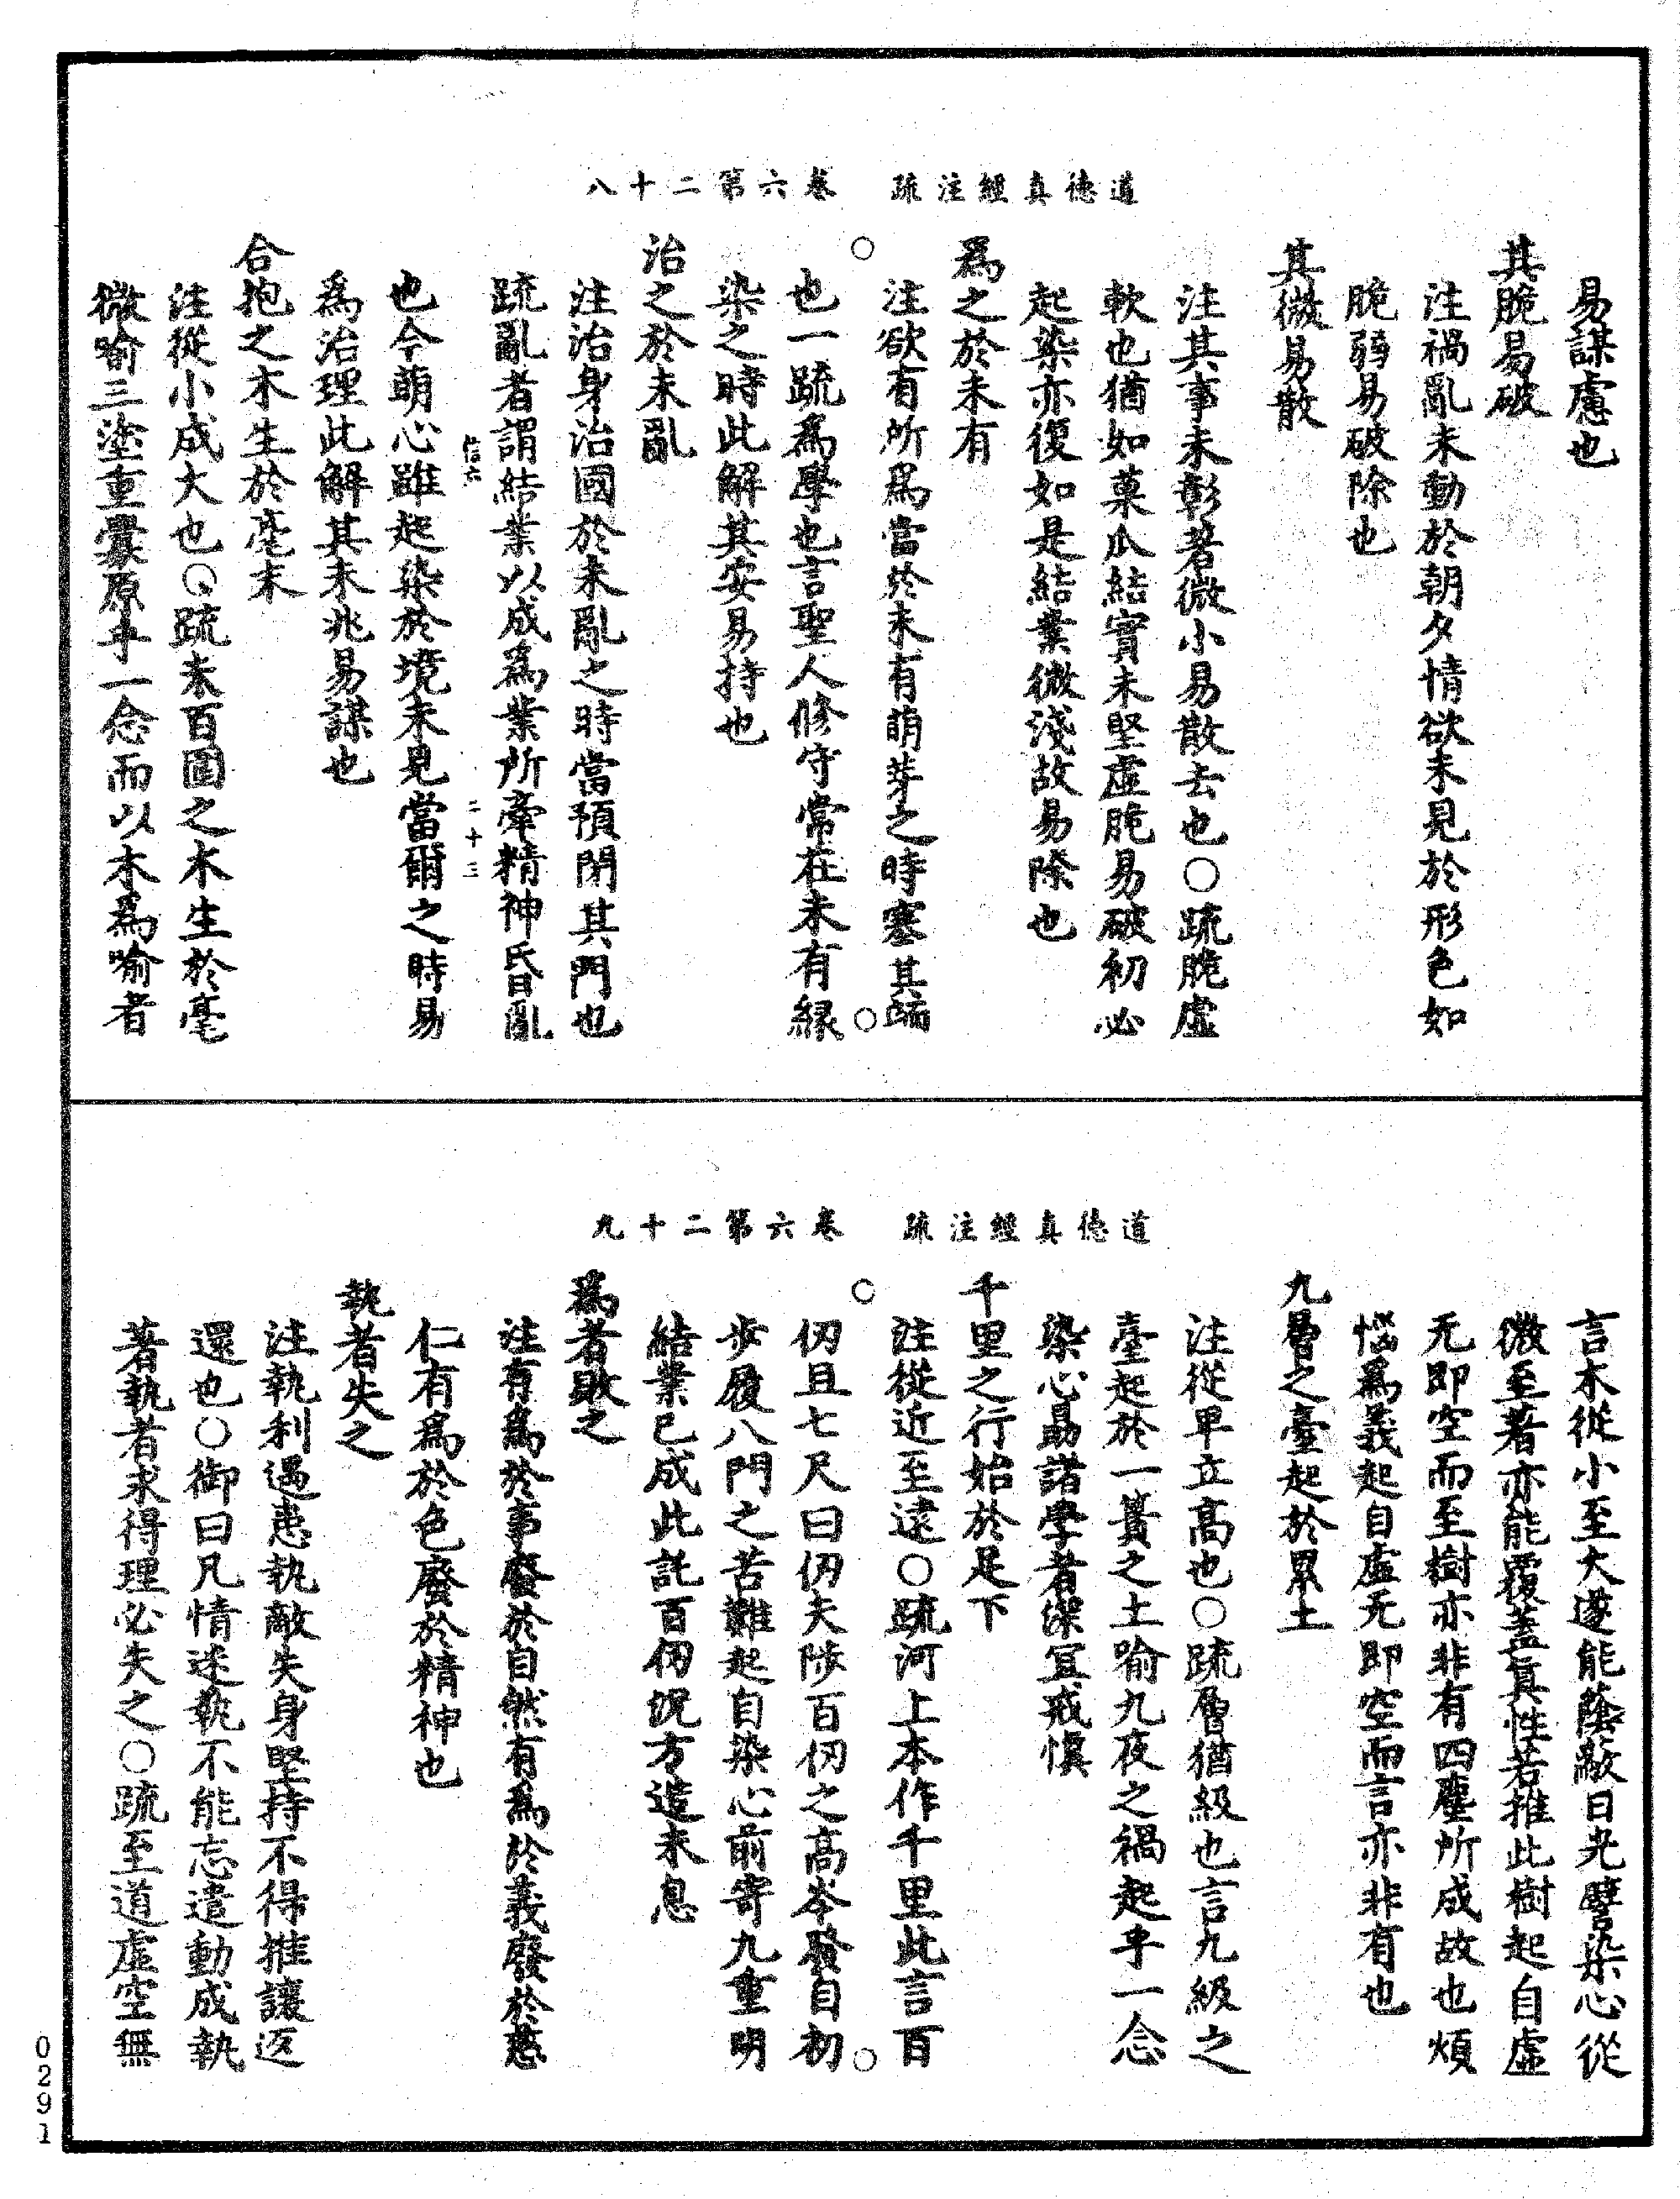 道德真經注疏　卷六第二十八
易謀慮也
其脆易破
注禍亂未動於朝夕情欲未見於形色如
脆弱易破除也
其微易散
注其事未彰著微小易散去也○疏脆虛
軟也猶如菓瓜結實未堅虛脆易破初必
起染亦復如是結業微淺故易除也
爲之於未有
注欲有所爲當於未有萌芽之時塞其端
也一疏爲學也言聖人修守常在未有緣
染之時此解其安易持也
治之於未亂
注治身治國於未亂之時當預閉其門也
疏亂者謂結業以成爲業所牽精神昏亂
信六　二十三
也今萌心雖起染於境未見當爾之時易
爲治理此解其未兆易謀也
合抱之木生於毫末
注從小成大也○疏末百圍之木生於毫
微喻三塗重釁原乎一念而以木爲喻者
道德真經注疏　卷六第二十九
言木從小至大遂能蔭蔽日光譬染心從
微至著亦能覆蓋真性若推此樹起自虛
无即空而至樹亦非有四塵所成故也煩
惱爲義起自虛无即空而言亦非有也
九層之臺起於累土
注從卑立高也○疏層猶級也言九級之
臺起於一簣之土喻九夜之禍起乎一念
染心勗諸學者深宜戒慎
千里之行始於足下
注從近至遠○疏河上本作千里此言百
仞且七尺曰仞夫陟百仞之高岑發自初
步履八門之苦難起自染心前寄九重明
結業已成此託百仞況方造未息
爲者敗之
注有爲於事廢於自然有爲於義廢於慈
仁有爲於色廢於精神也
執者失之
注執利遇患執敵失身堅持不得推讓返
還也○御曰凡情迷執不能忘遣動成執
著執者求得理必失之○疏至道虛空無
0291